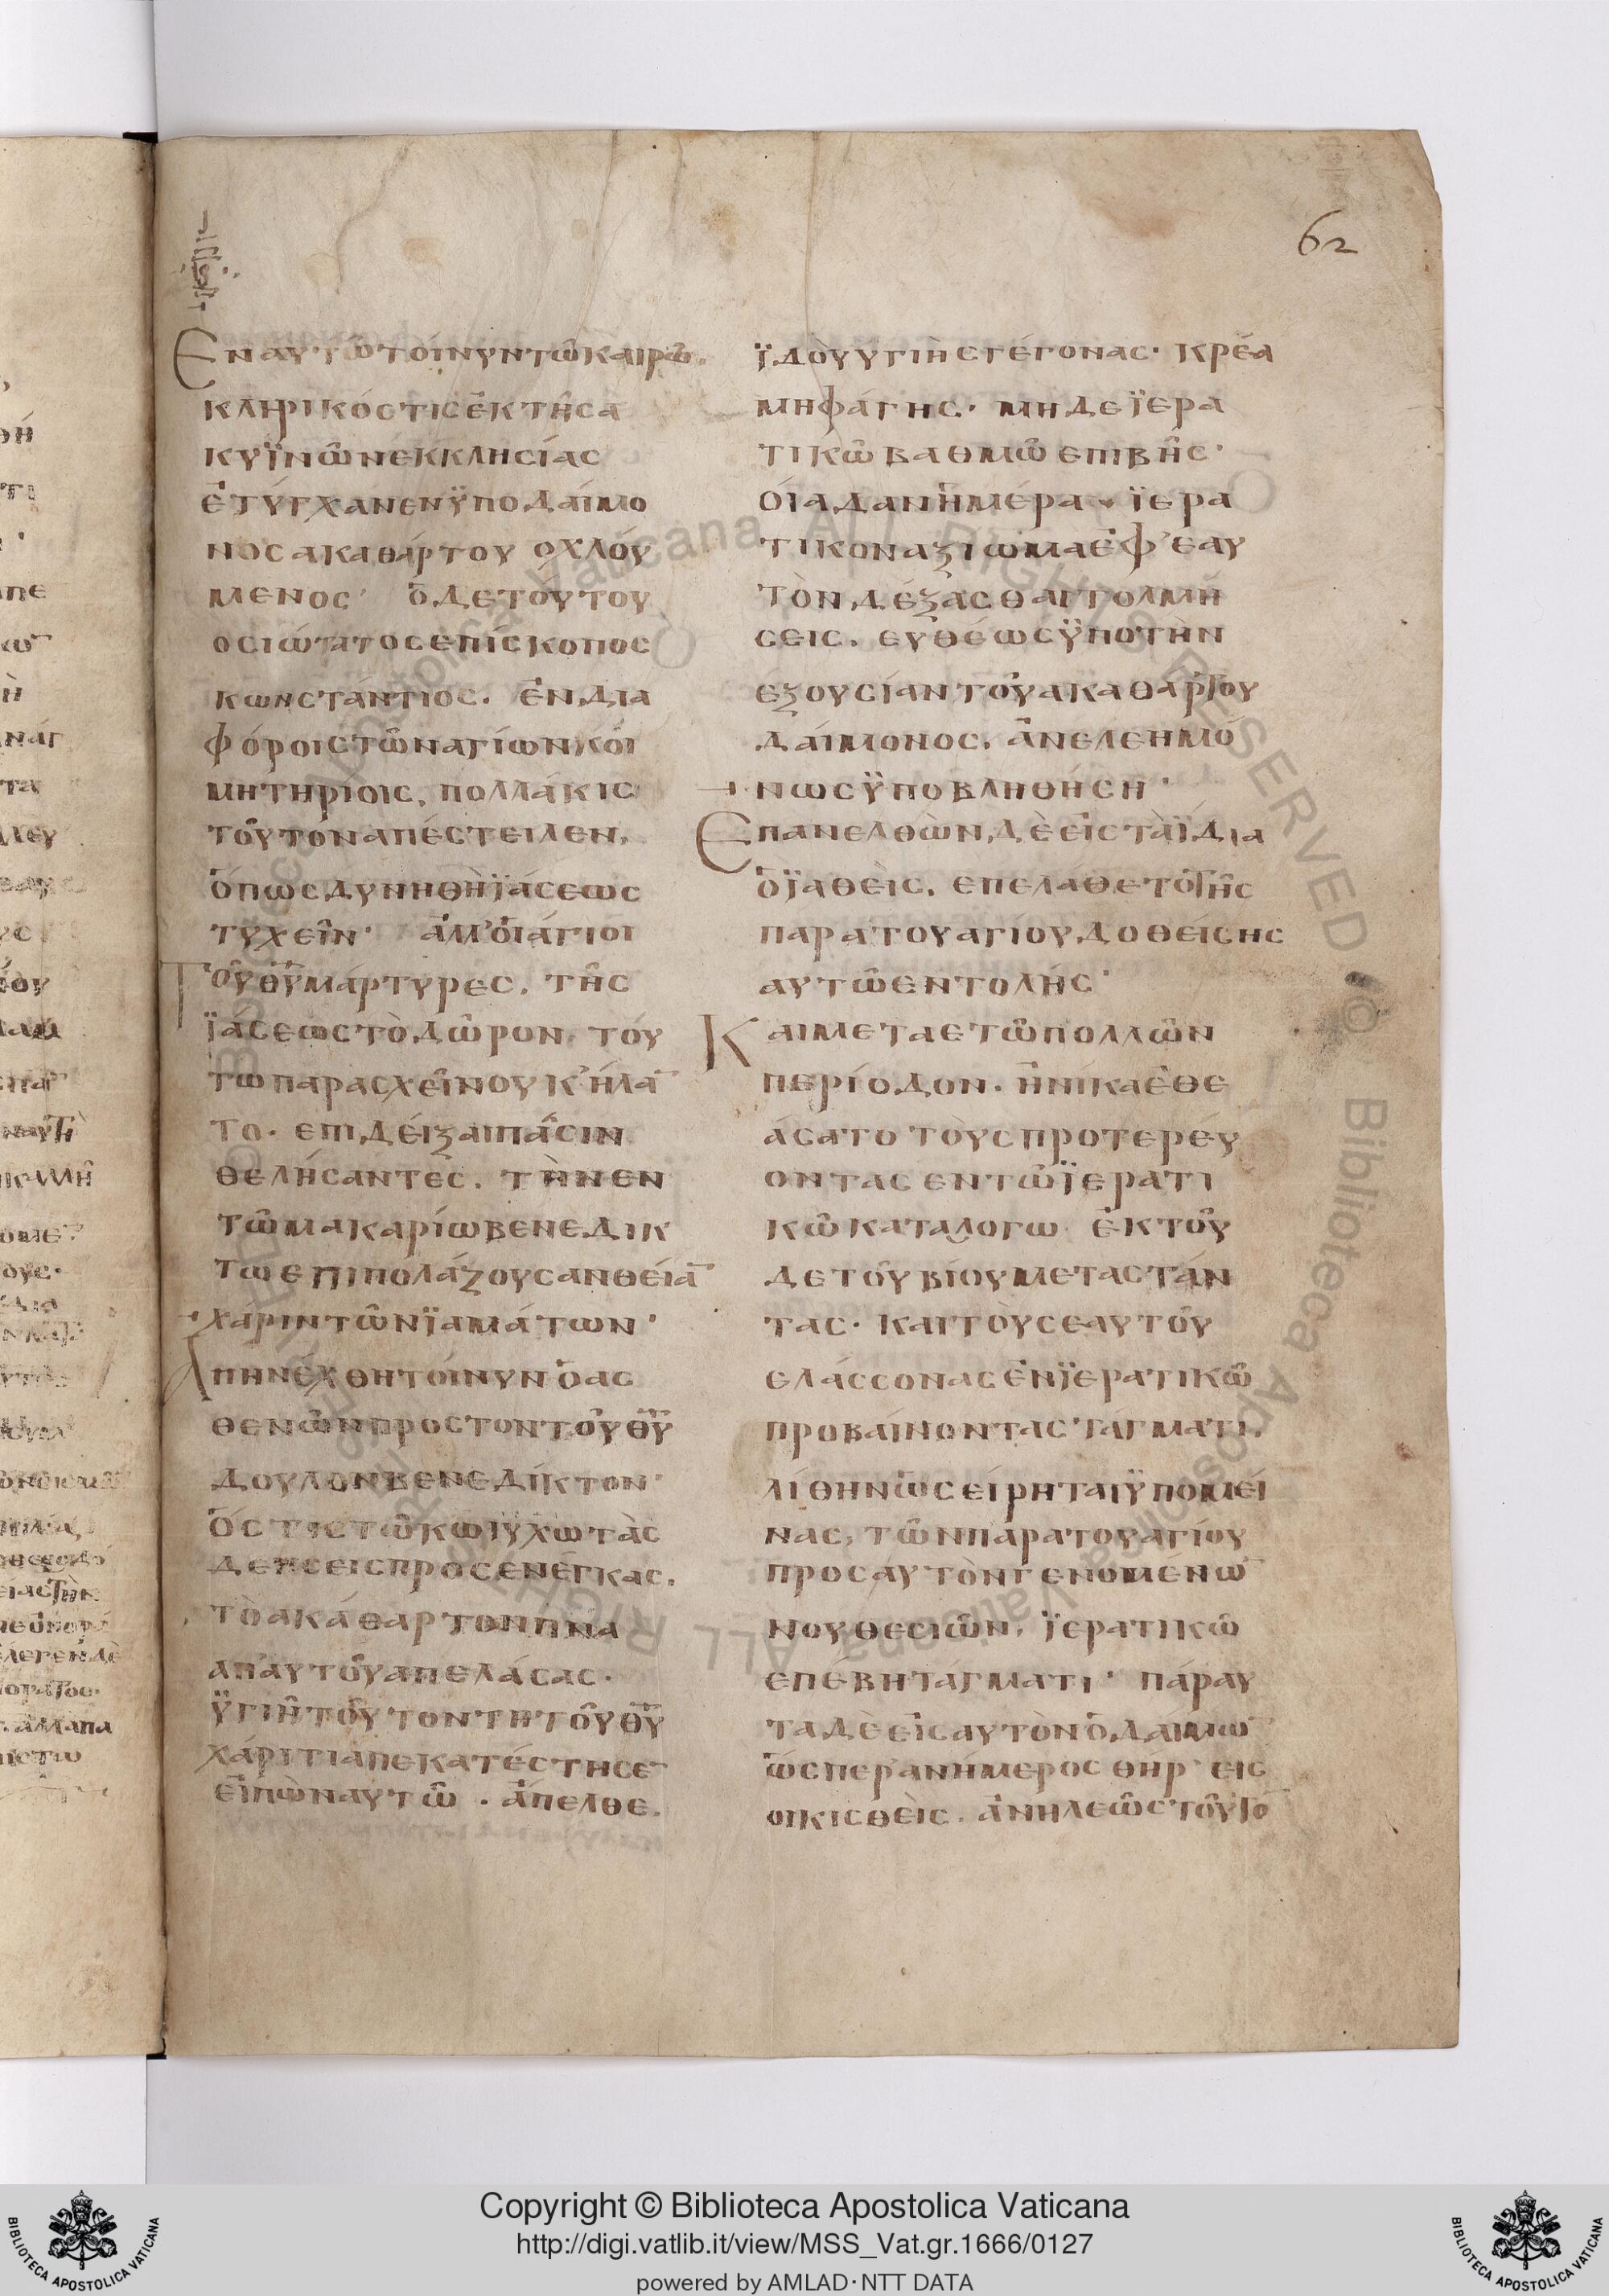 62
Ἐν αυτῶ τοίνυν τῶ καιρῶ.
κληρικός τις ἐκ τῆς α
κυϊνῶν ἐκκλησίας
ἐτύγχανεν ϋπο δαίμο
νος ακαθάρτου οχλού
μενος· ὁ δε τούτου
οσιώτατος επίσκοπος
κωνστάντιος. ἐν δια
φόροις τῶν αγίων κοι
μητηρίοις, πολλάκις
τοῦτον απέστειλεν,
ὅπως δυνηθῆ ϊάσεως
τυχεῖν· ἀλλ' οἱ άγιοι
τοῦ θῡ μάρτυρες, τῆς
ϊάσεως τὸ δῶρον τού
τω παρασχεῖν ουκ ηίλα
το. επιδείξαι πᾶσιν
θελήσαντες. τὴν εν
τῶ μακαρίω βενεδικ
τω επιπολάζουσαν θείᾱ
χάριν τῶν ϊαμάτων·
Απηνέχθη τοίνυν ὁ ας
θενῶν προς τον τοῦ θῡ
δουλον βενεδίκτον·
ὅστις τῶ κω ιῡ χω τὰς
δεησεις προσενέγκας.
τὸ ακάθαρτον πνα
απ' αυτοῦ απελάσας.
ϋγιῆ τοῦτον τη τοῦ θῡ
χάριτι απεκατέστησε̄
εἰπὼν αυτῶ. ἄπελθε.
ϊδοὺ υγιὴς γέγονας· κρέα
μη φάγης. μηδε ϊερα
τικῶ βαθμῶ επιβῆς·
οία δ' αν ἡμέρα ϊερα
τικον αξιωμα ἐφ' εαυ
τὸν δέξασθαι τολμή
σεις. ευθέως ϋπο τὴν
εξουσίαν τοῦ ακαθάρτου
δαίμονος. ἀνελεημό
νως ϋποβληθήση·
Επανελθὼν δὲ εἰς τὰ ϊδια
ὁ ϊαθεὶς. επελάθετο τῆς
παρα του αγίου δοθεισης
αυτῶ εντολής·
Και μετα ετῶ πολλῶν
περίοδον. ἡνίκα ἐθε
άσατο τοὺς προτερεύ
οντας εν τῶ ϊερατι
κῶ καταλογω ἐκ τοῦ
δε τοῦ βίου μεταστάν
τας. και τοὺς εαυτοῦ
ελάσσονας ἐν ϊερατικῶ
προβαίνοντας τάγματι.
λίθην ὡς είρηται ϋπομεί
νας, τῶν παρα του αγίου
προς αυτὸν γενομένω̄
νουθεσιῶν, ϊερατικῶ
επέβη τάγματι· πάραυ
τα δὲ εἰς αυτὸν ὁ δαίμω̄
ὥσπερ ανήμερος θὴρ εις
οικισθεὶς. ἀνηλεῶς τοῦτο̄
Copyright © Biblioteca Apostolica Vaticana
http://digi.vatlib.it/view/MSS_Vat.gr.1666/0127
powered by AMLAD·NTT DATA
BIBLIOTECA APOSTOLICA VATICANA
BIBLIOTECA APOSTOLICA VATICANA